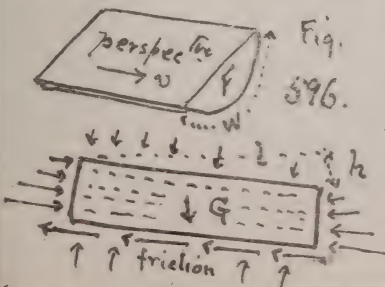 perspective
Fig.
596.
v
F
w
h
G
friction